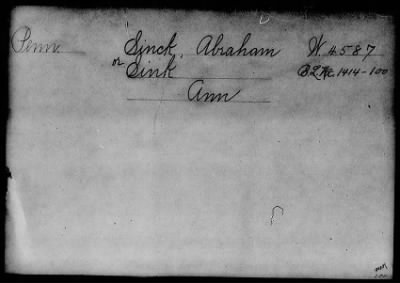 Penn. Sinck, Abraham W 4587
or Sink B.L.Wt. 1414-100
Ann